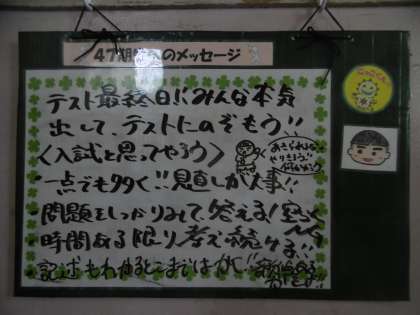 47期のメッセージ
テスト最終日!!みんな本気
出して、テストにのぞもう!!
〈入試と思ってやろう〉
一点でも多く!!見直しが大事!!
・問題をしっかりみて、答える!
時間ある限り考え続ける!!
・記述もわかるとこまではかく!!